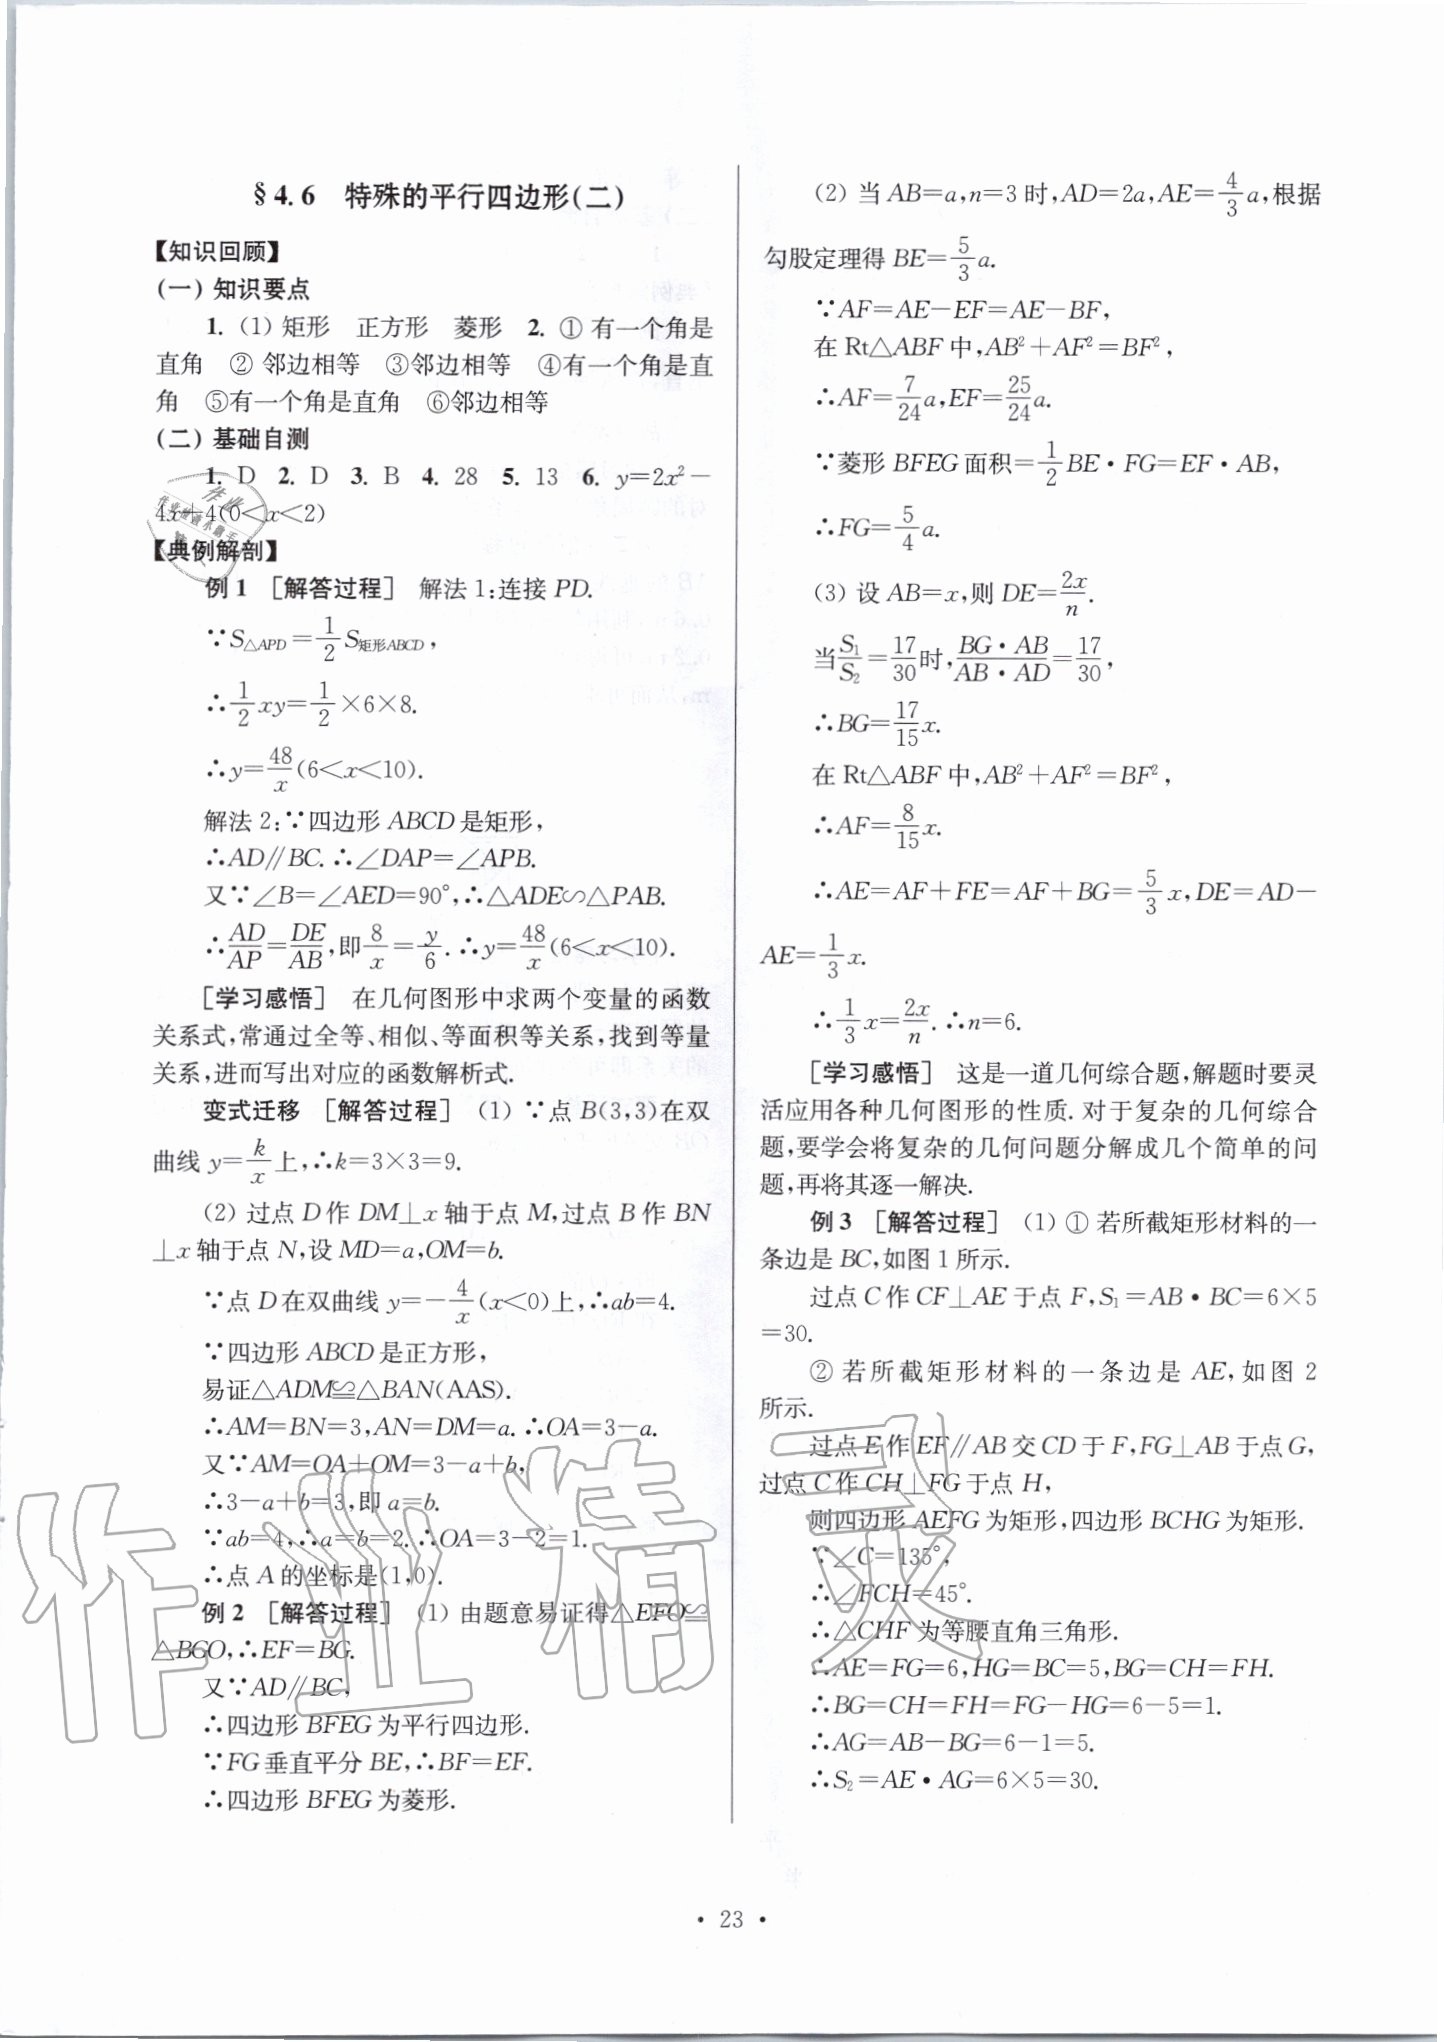 §4.6 特殊的平行四边形(二)
【知识回顾】
(一) 知识要点
1. (1) 矩形 正方形 菱形 2. ①有一个角是
直角 ②邻边相等 ③邻边相等 ④有一个角是直
角 ⑤有一个角是直角 ⑥邻边相等
(二) 基础自测
1. D 2. D 3. B 4. 28 5. 13 6. y=2x²-
4x+4(0<x<2)
【典例解剖】
例1 [解答过程] 解法1:连接PD.
∵S△APD=1/2 S矩形ABCD,
∴1/2 xy=1/2×6×8.
∴y=48/x(6<x<10).
解法2:∵四边形ABCD是矩形,
∴AD∥BC.∴∠DAP=∠APB.
又∵∠B=∠AED=90°,∴△ADE∽△PAB.
∴AD/AP=DE/AB,即8/x=y/6.∴y=48/x(6<x<10).
[学习感悟] 在几何图形中求两个变量的函数
关系式,常通过全等、相似、等面积等关系,找到等量
关系,进而写出对应的函数解析式.
变式迁移 [解答过程] (1) ∵点B(3,3)在双
曲线y=k/x上,∴k=3×3=9.
(2) 过点D作DM⊥x轴于点M,过点B作BN
⊥x轴于点N,设MD=a,OM=b.
∵点D在双曲线y=-4/x(x<0)上,∴ab=4.
∵四边形ABCD是正方形,
易证△ADM≌△BAN(AAS).
∴AM=BN=3,AN=DM=a.∴OA=3-a.
又∵AM=OA+OM=3-a+b,
∴3-a+b=3,即a=b.
∵ab=4,∴a=b=2.∴OA=3-2=1.
∴点A的坐标是(1,0).
例2 [解答过程] (1) 由题意易证得△EFO≌
△BGO,∴EF=BG.
又∵AD∥BC,
∴四边形BFEG为平行四边形.
∵FG垂直平分BE,∴BF=EF.
∴四边形BFEG为菱形.
(2) 当AB=a,n=3时,AD=2a,AE=4/3 a,根据
勾股定理得BE=5/3 a.
∵AF=AE-EF=AE-BF,
在Rt△ABF中,AB²+AF²=BF²,
∴AF=7/24 a,EF=25/24 a.
∵菱形BFEG面积=1/2 BE·FG=EF·AB,
∴FG=5/4 a.
(3) 设AB=x,则DE=2x/n.
当S₁/S₂=17/30时,BG·AB/AB·AD=17/30,
∴BG=17/15 x.
在Rt△ABF中,AB²+AF²=BF²,
∴AF=8/15 x.
∴AE=AF+FE=AF+BG=5/3 x,DE=AD-
AE=1/3 x.
∴1/3 x=2x/n.∴n=6.
[学习感悟] 这是一道几何综合题,解题时要灵
活应用各种几何图形的性质.对于复杂的几何综合
题,要学会将复杂的几何问题分解成几个简单的问
题,再将其逐一解决.
例3 [解答过程] (1) ①若所截矩形材料的一
条边是BC,如图1所示.
过点C作CF⊥AE于点F,S₁=AB·BC=6×5
=30.
②若所截矩形材料的一条边是AE,如图2
所示.
过点E作EF∥AB交CD于F,FG⊥AB于点G,
过点C作CH⊥FG于点H,
则四边形AEFG为矩形,四边形BCHG为矩形.
∵∠C=135°,
∴∠FCH=45°.
∴△CHF为等腰直角三角形.
∴AE=FG=6,HG=BC=5,BG=CH=FH.
∴BG=CH=FH=FG-HG=6-5=1.
∴AG=AB-BG=6-1=5.
∴S₂=AE·AG=6×5=30.
• 23 •
作业精灵